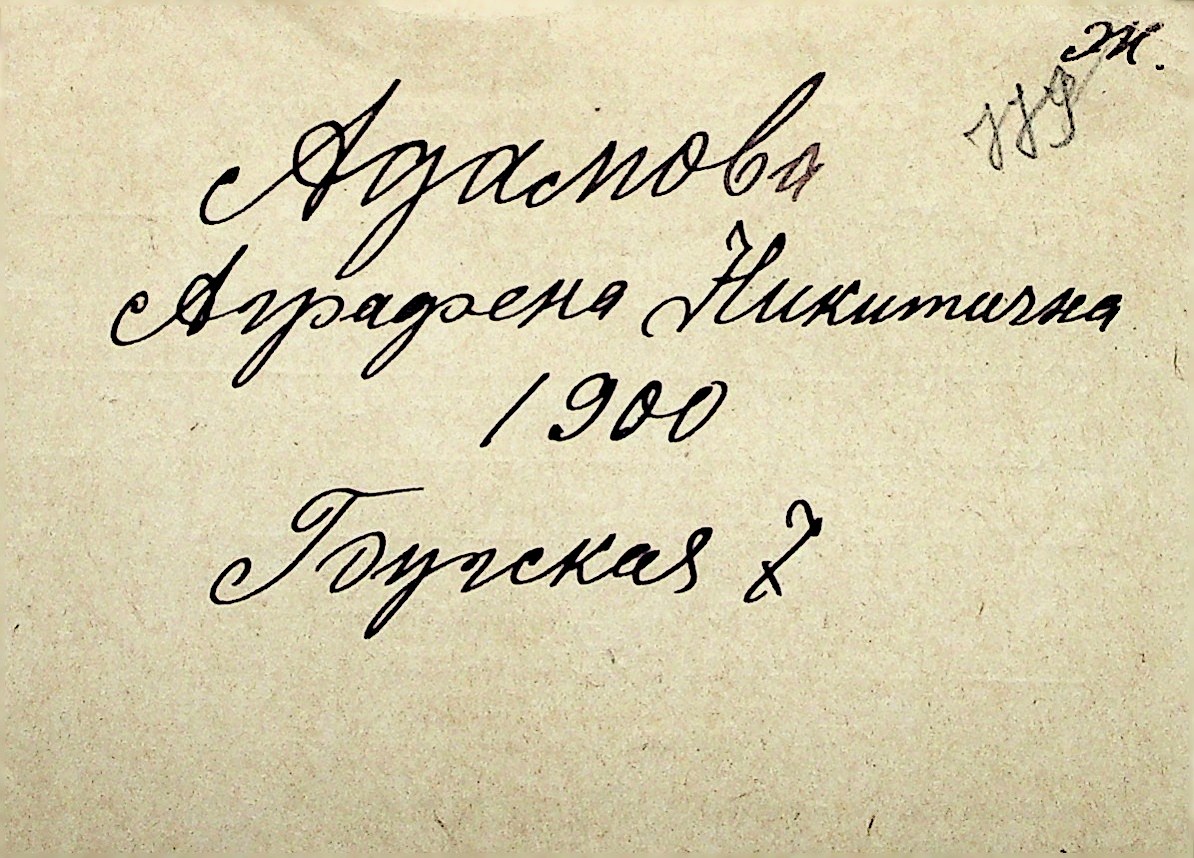 ж.
Адамова
Аграфена Никитична
1900
Бугская 7